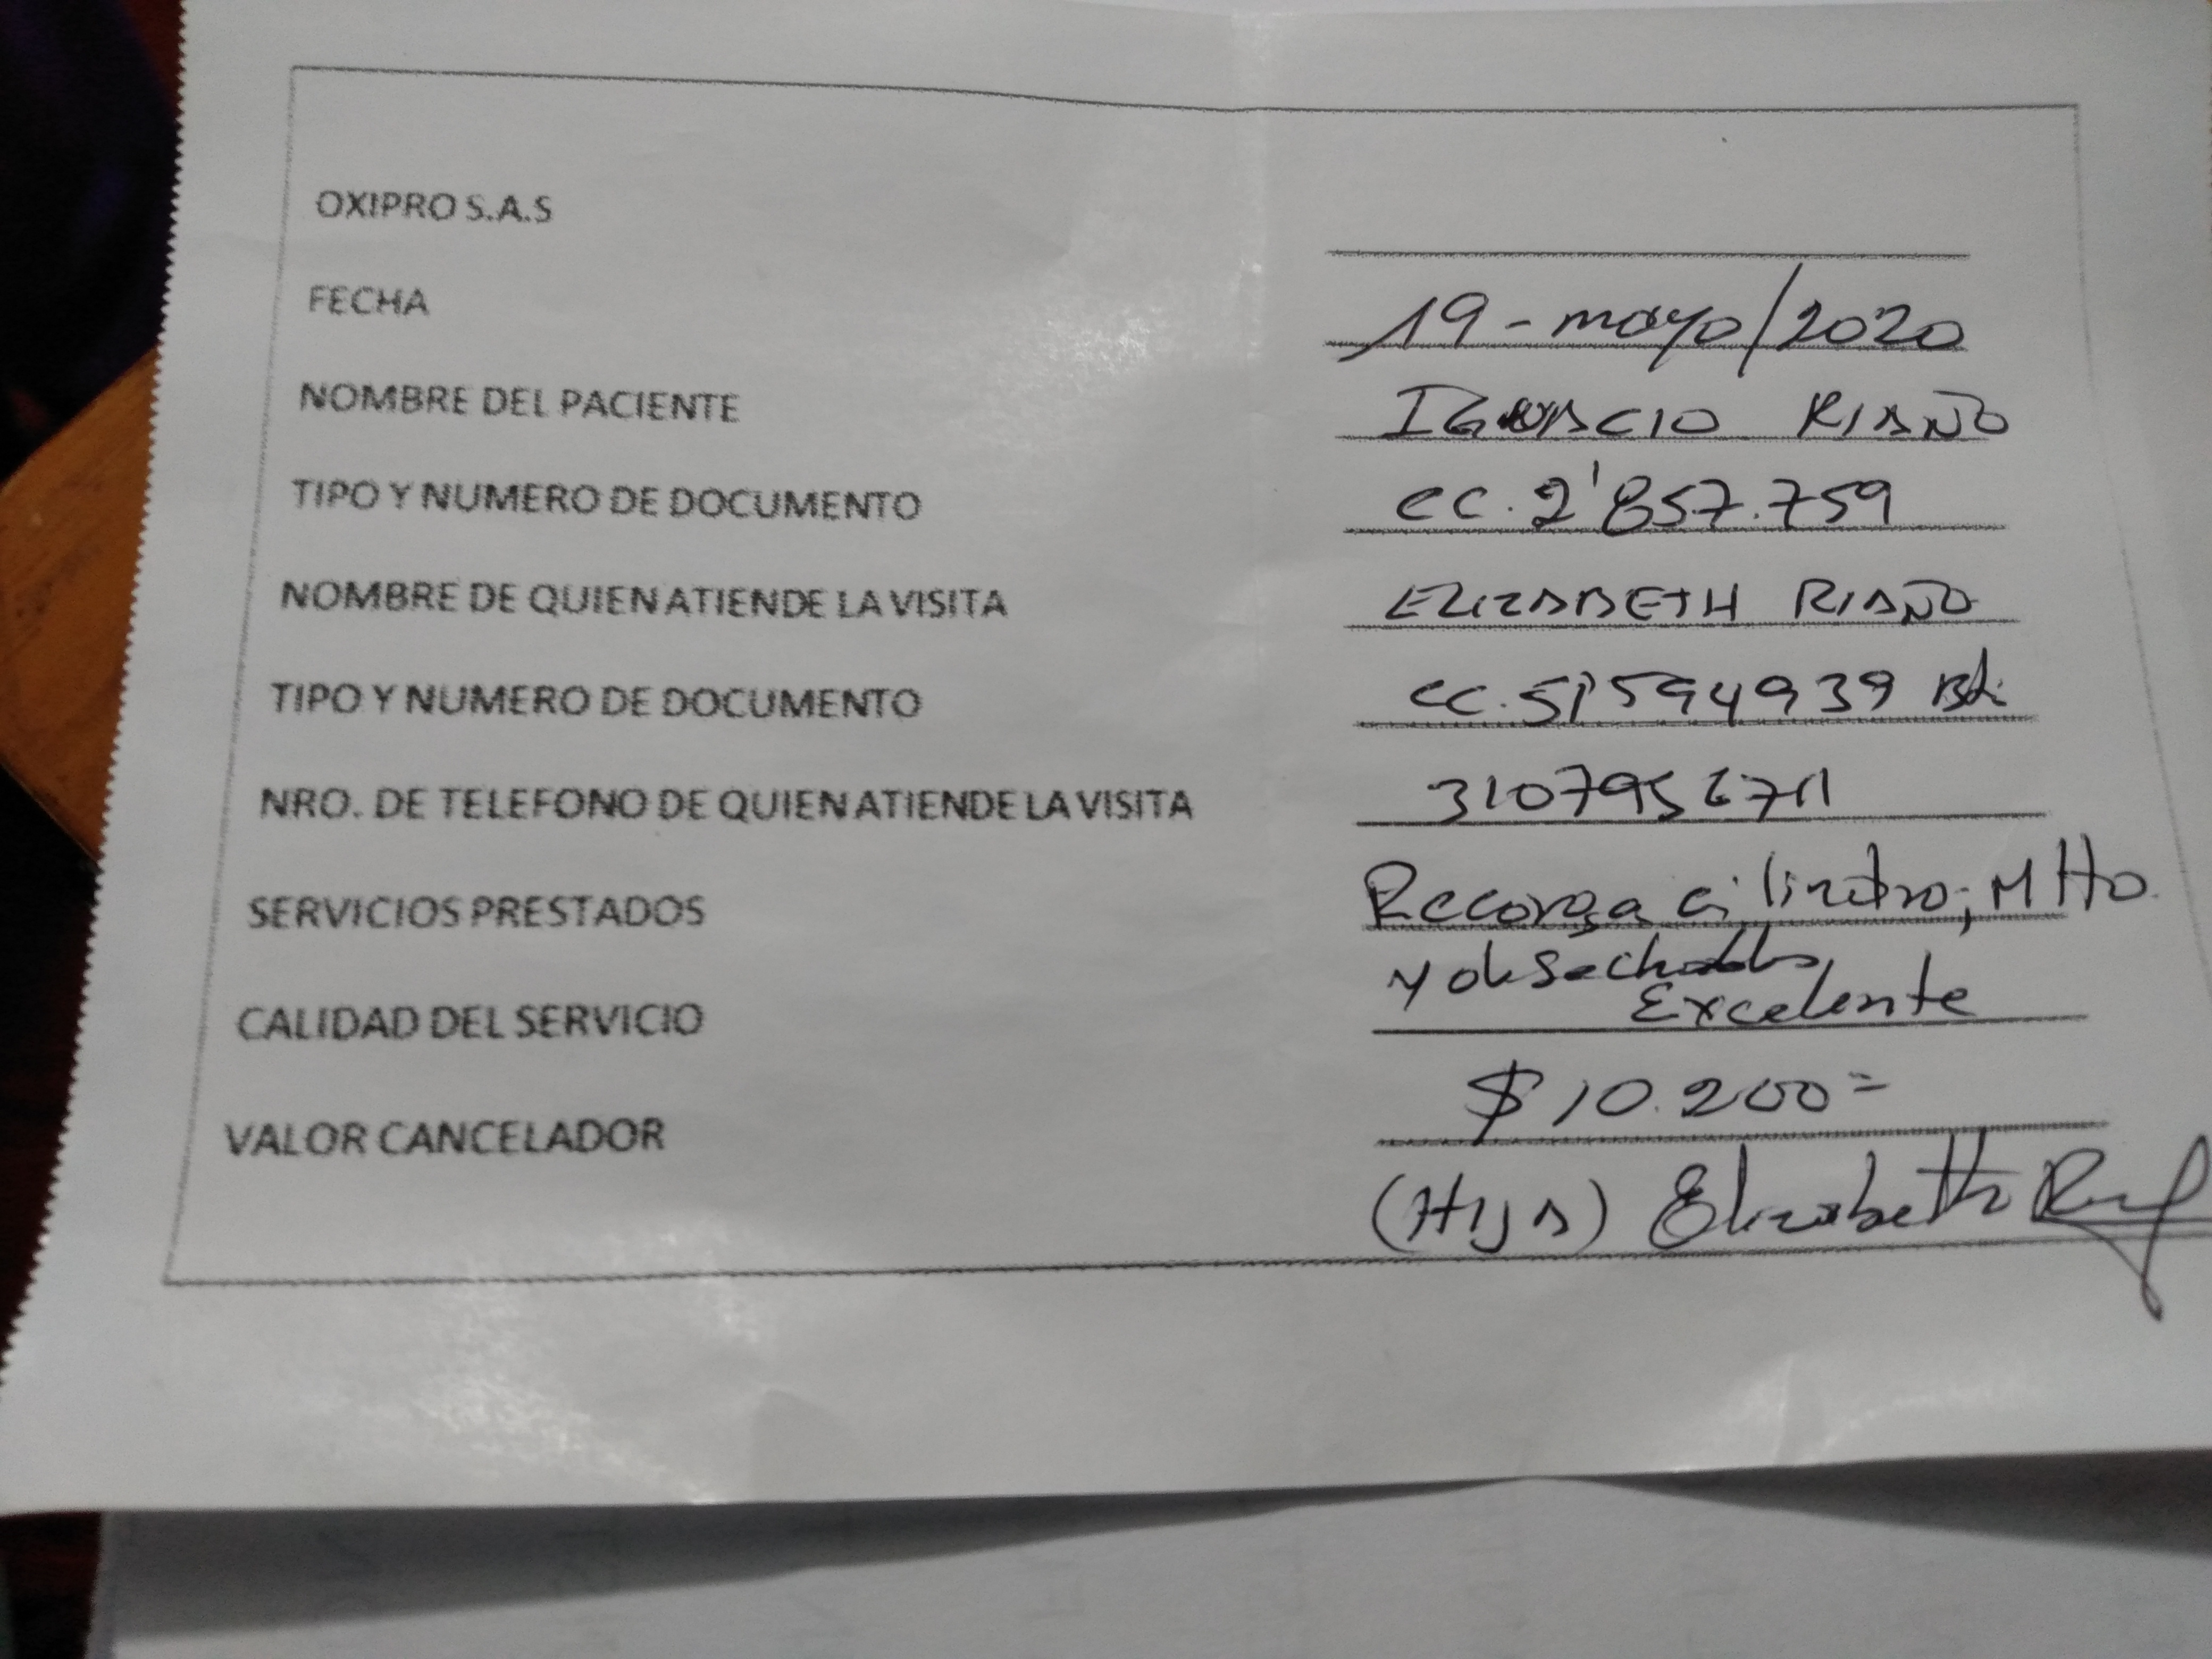 OXIPRO S.A.S
FECHA 19 - mayo/2020
NOMBRE DEL PACIENTE IGNACIO RIAÑO
TIPO Y NUMERO DE DOCUMENTO CC. 2'857.759
NOMBRE DE QUIEN ATIENDE LA VISITA ELIZABETH RIAÑO
TIPO Y NUMERO DE DOCUMENTO CC. 51'594939
NRO. DE TELEFONO DE QUIEN ATIENDE LA VISITA 3107956711
SERVICIOS PRESTADOS Recarga cilindro; MHo.
y
CALIDAD DEL SERVICIO Excelente
VALOR CANCELADOR $10.200=
(HIJA) Elizabeth